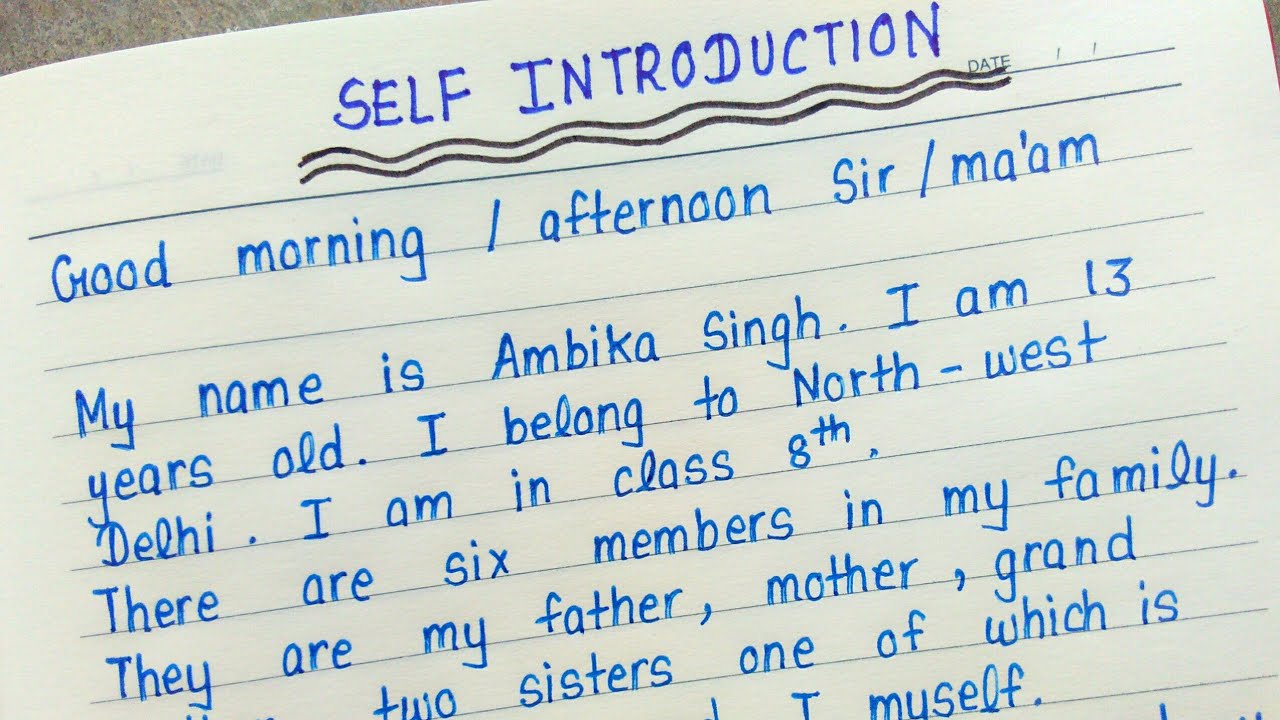 SELF INTRODUCTION
DATE / /
Good morning / afternoon Sir / ma'am
My name is Ambika Singh. I am 13
years old. I belong to North - west
Delhi. I am in class 8th.
There are six members in my family.
They are my father, mother, grand
two sisters one of which is
I myself.